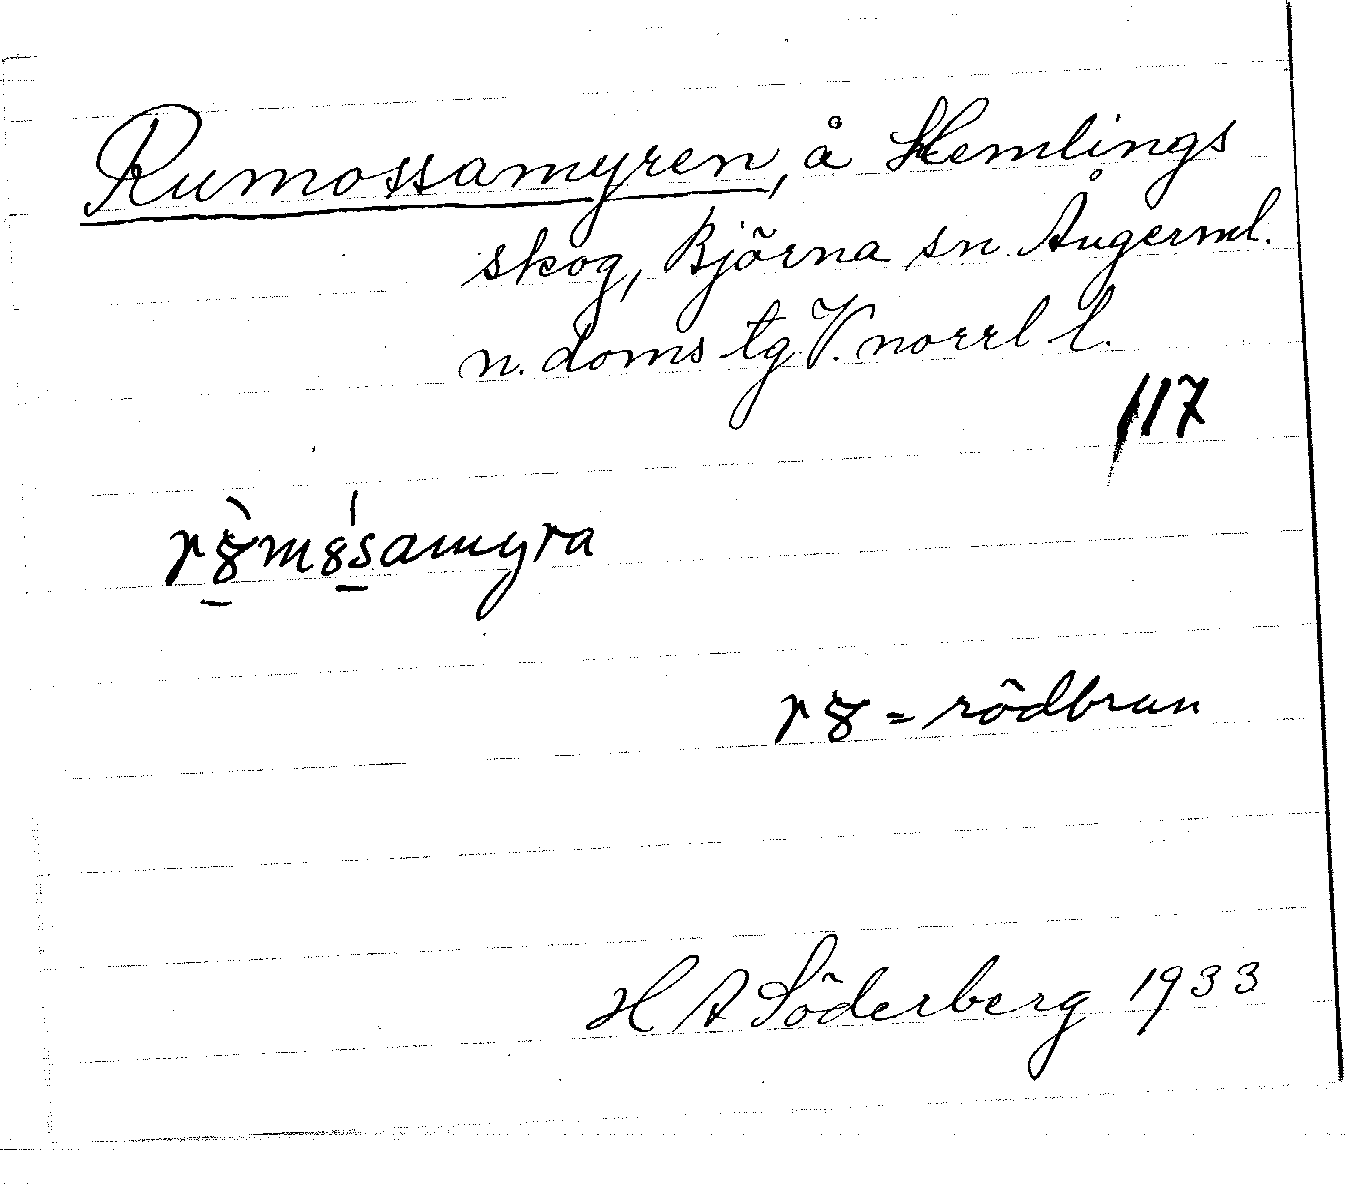 Rumossamyren, å Hemlings
skog, Björna sn Ångerml.
n. doms tg V. norrl l.
117
rȣ̀mȣ́samyra
rȣ = rödbrun
H A Söderberg 1933